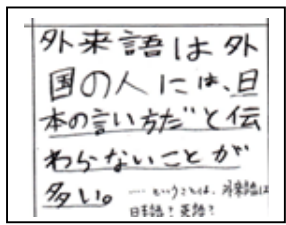 外来語は外
国の人には、日
本の言い方だと伝
わらないことが
多い。
… ということは、外来語は
日本語？英語？